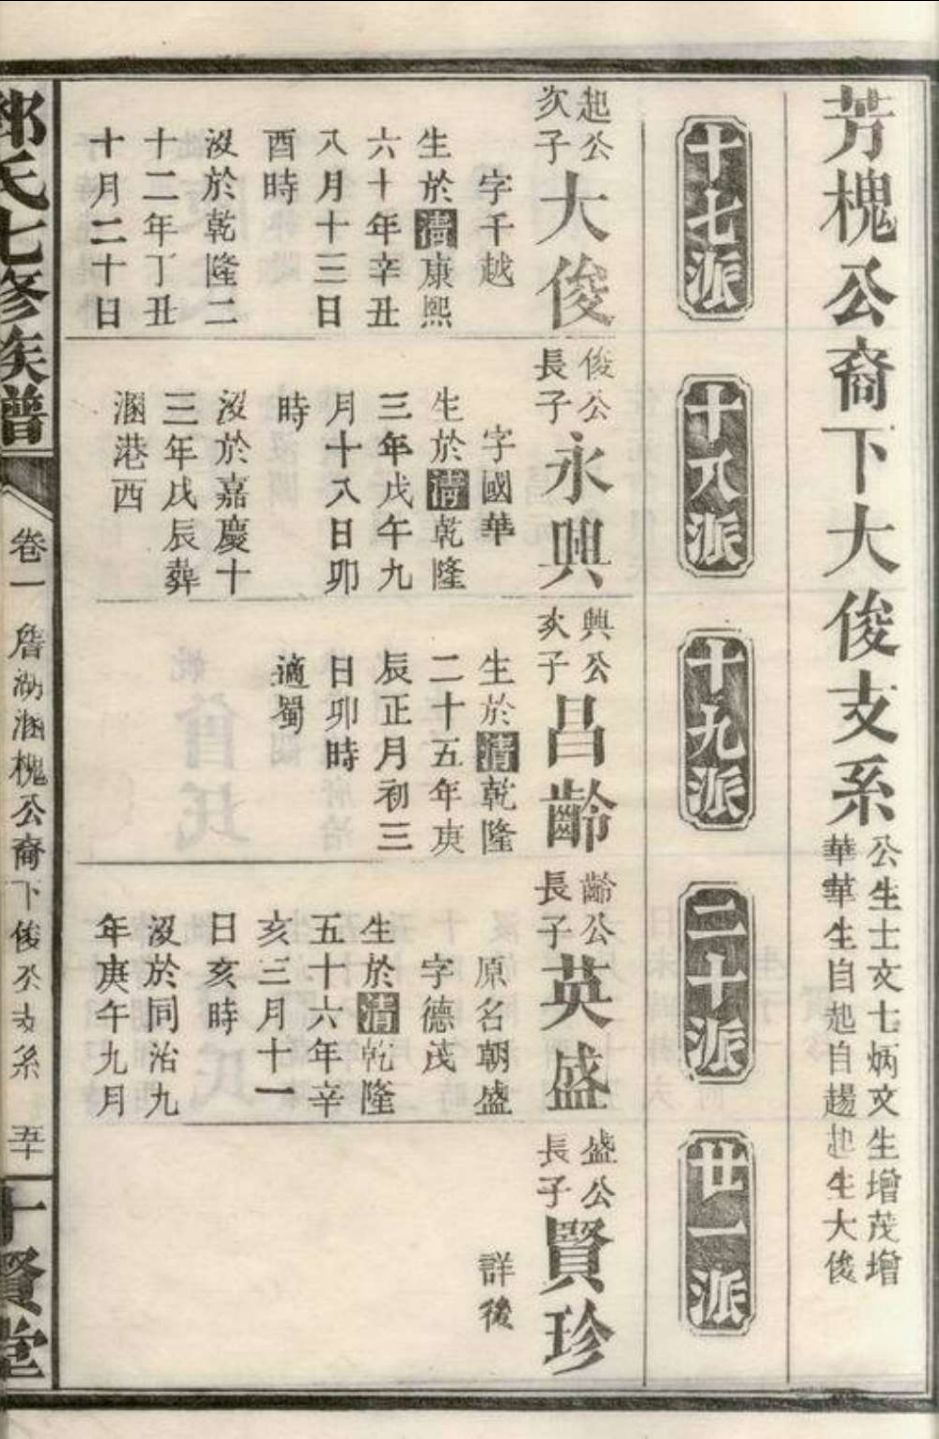 芳槐公裔下大俊支系
公生士文七炳文生增茂增
華華生自起自趨起生大俊
十七派
十八派
十九派
二十派
廿一派
起公
次子
大俊
字千越
生於清康熙
六十年辛丑
八月十三日
酉時
沒於乾隆二
十二年丁丑
十月二十日
俊公
長子
永興
字國華
生於清乾隆
三年戊午九
月十八日卯
時
沒於嘉慶十
三年戊辰葬
溷港西
興公
次子
昌齡
生於清乾隆
二十五年庚
辰正月初三
日卯時
適蜀
齡公
長子
英盛
原名朝盛
字德茂
生於清乾隆
五十六年辛
亥三月十一
日亥時
沒於同治九
年庚午九月
盛公
長子
賢珍
詳後
氏七修族譜
卷一
槐公裔下俊公支系
五十
十賢堂